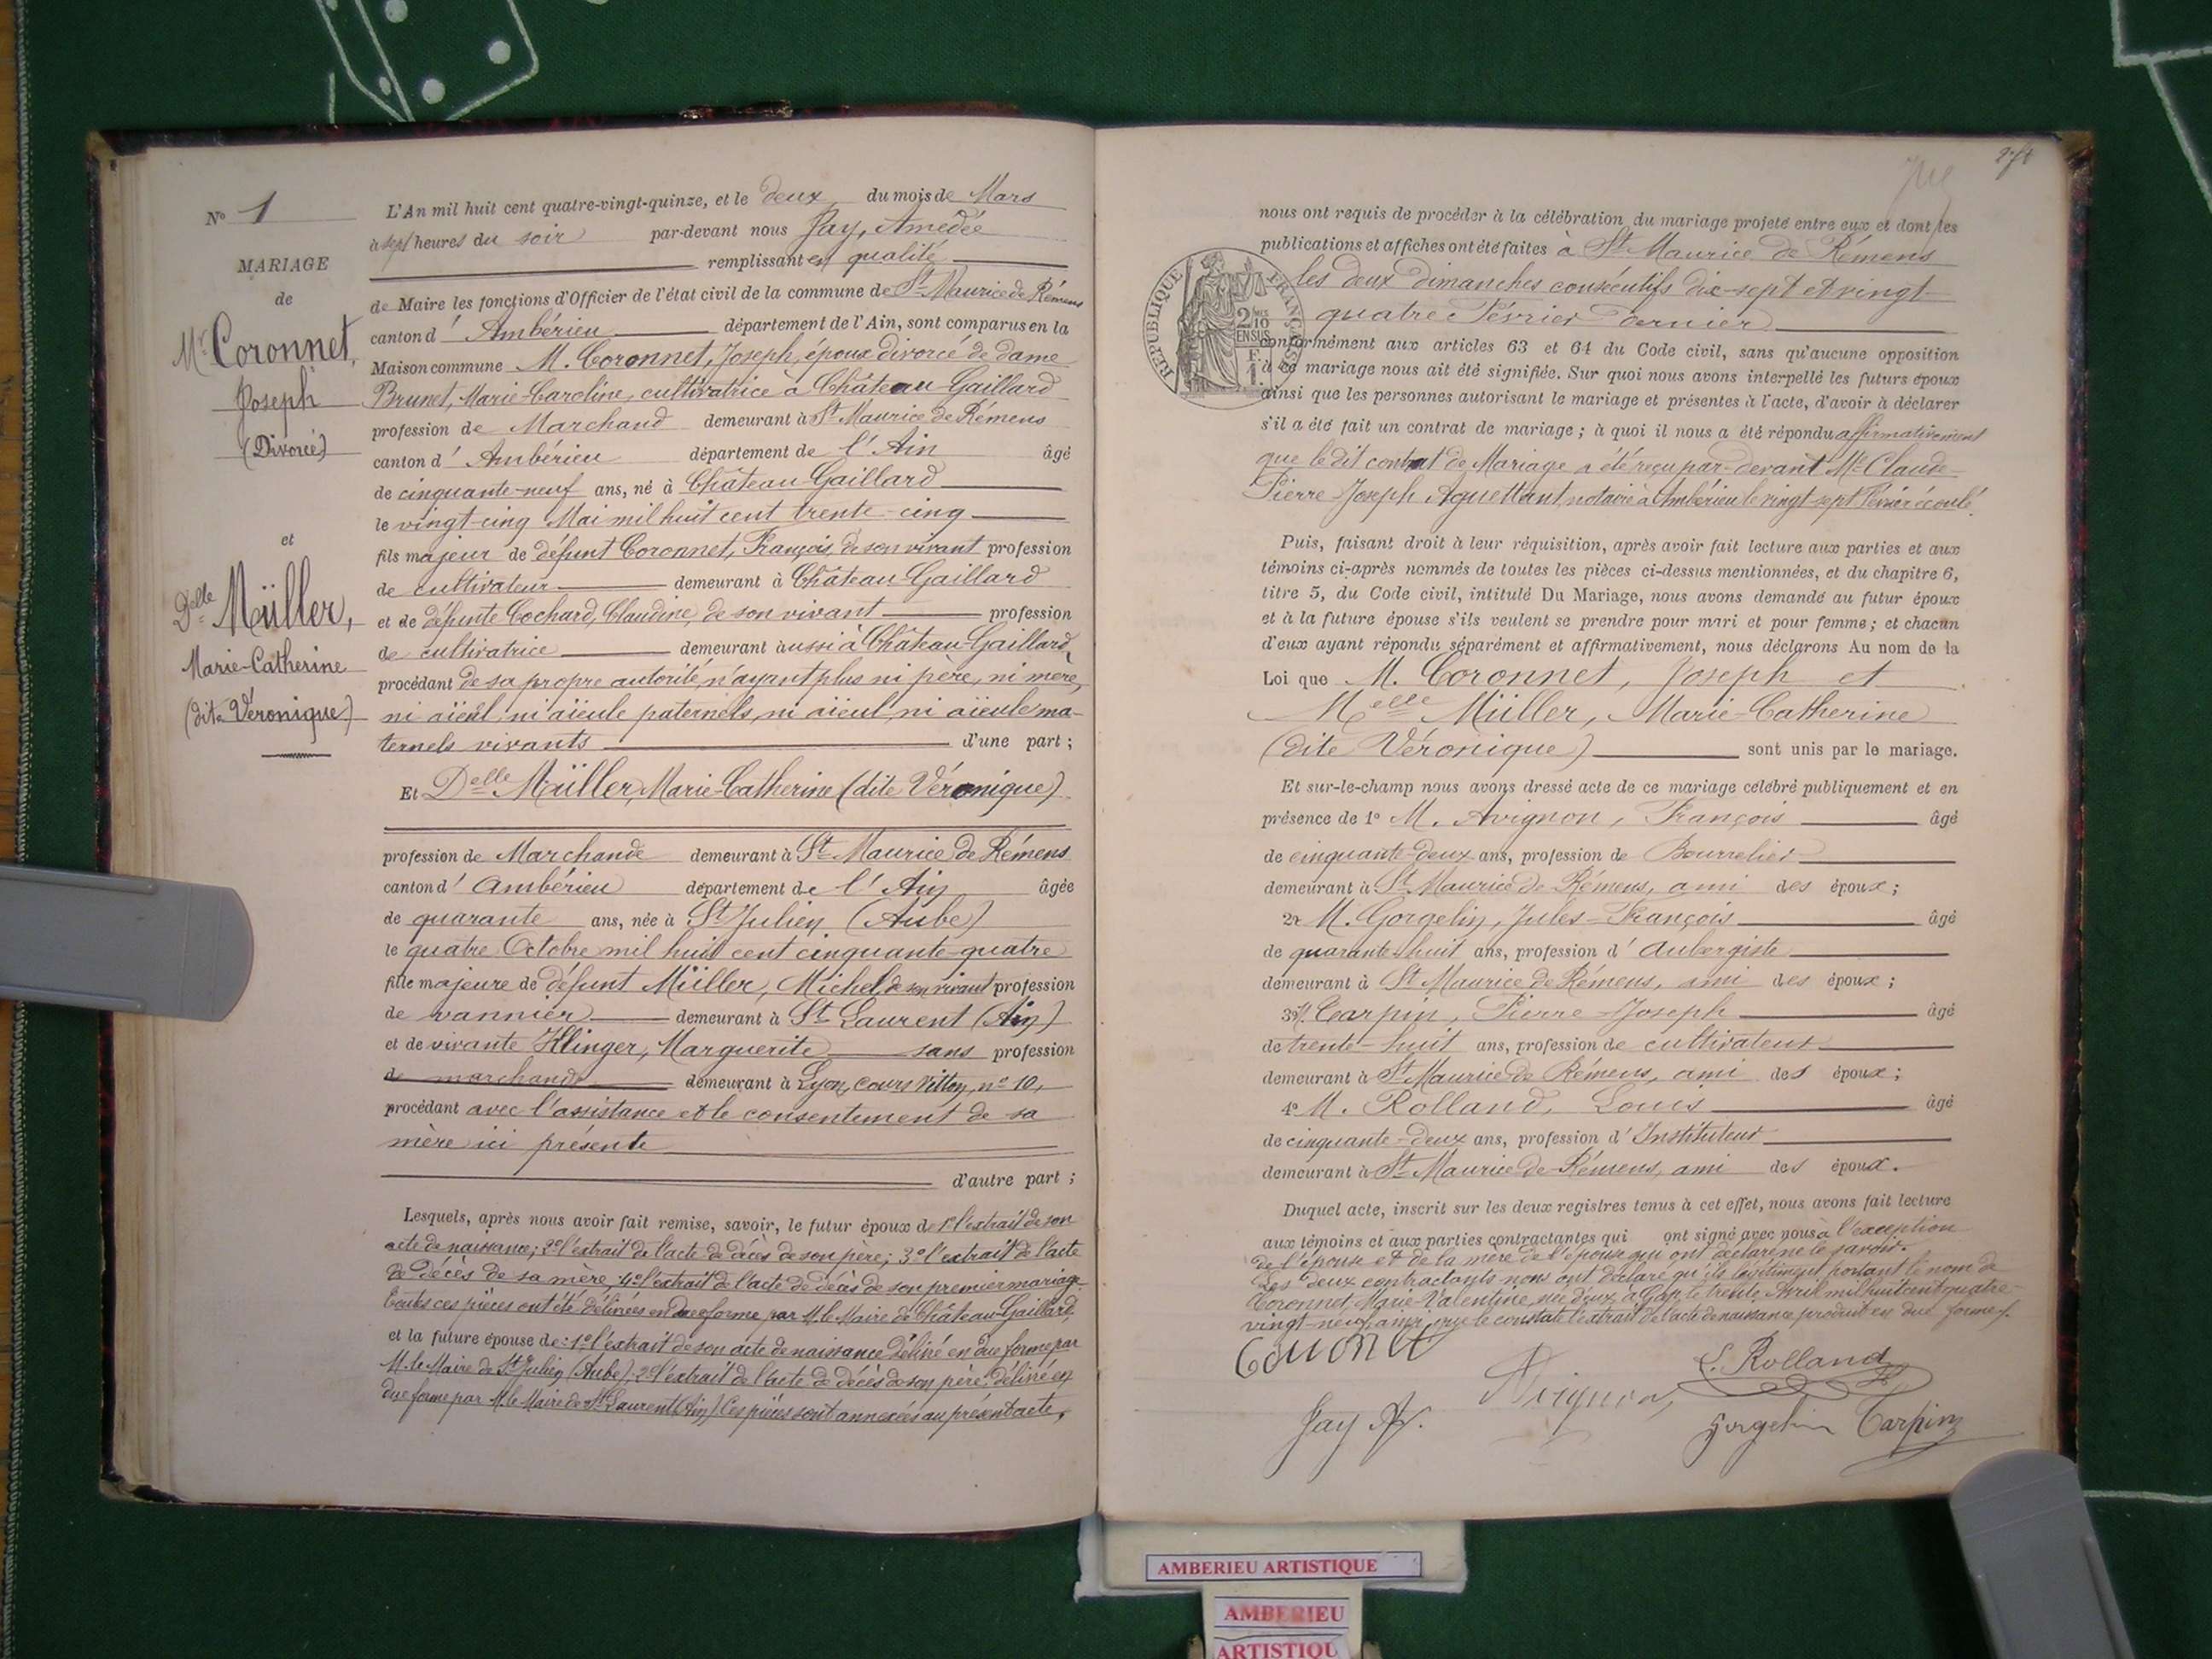 N° 1
MARIAGE
de
Mr Coronnet,
Joseph
(Divorcé)
et
Delle Müller,
Marie-Catherine
(dite Véronique)
L'An mil huit cent quatre-vingt-quinze, et le deux du mois de Mars
à sept heures du soir par-devant nous Jay, Amédée
remplissant en qualité
de Maire les fonctions d'Officier de l'état civil de la commune de St Maurice de Rémens
canton d' Ambérieu département de l'Ain, sont comparus en la
Maison commune M. Coronnet, Joseph, époux divorcé de dame
Brunet, Marie-Caroline, cultivatrice à Château-Gaillard
profession de Marchand demeurant à St Maurice de Rémens
canton d' Ambérieu département de l'Ain âgé
de cinquante-neuf ans, né à Château-Gaillard
le vingt-cinq Mai mil huit cent trente-cinq
fils majeur de défunt Coronnet, François, de son vivant profession
de cultivateur demeurant à Château-Gaillard
et de défunte Cochard, Claudine, de son vivant profession
de cultivatrice demeurant aussi à Château-Gaillard,
procédant de sa propre autorité, n'ayant plus ni père, ni mère,
ni aïeul ni aïeule paternels, ni aïeul, ni aïeule ma-
ternels vivants d'une part ;
Et Delle Müller, Marie-Catherine (dite Véronique)
profession de Marchande demeurant à St Maurice de Rémens
canton d' Ambérieu département de l'Ain âgée
de quarante ans, née à St Julien (Aube)
le quatre Octobre mil huit cent cinquante-quatre
fille majeure de défunt Müller, Michel, de son vivant profession
de vannier demeurant à St Laurent (Ain)
et de vivante Klinger, Marguerite sans profession
de marchande demeurant à Lyon, cours Vitton, n° 10,
procédant avec l'assistance et le consentement de sa
mère ici présente
d'autre part ;
Lesquels, après nous avoir fait remise, savoir, le futur époux de 1° l'extrait de son
acte de naissance; 2° l'extrait de l'acte de décès de son père; 3° l'extrait de l'acte
de décès de sa mère; 4° l'extrait de l'acte de décès de son premier mariage.
Toutes ces pièces ont été délivrées en due forme par M. le Maire de Château-Gaillard,
et la future épouse de : 1° l'extrait de son acte de naissance délivré en due forme par
M. le Maire de St Julien (Aube); 2° l'extrait de l'acte de décès de son père, délivré en
due forme par M. le Maire de St Laurent (Ain) Ces pièces sont annexées au présent acte,
nous ont requis de procéder à la célébration du mariage projeté entre eux et dont les
publications et affiches ont été faites à St Maurice de Rémens
les deux dimanches consécutifs dix-sept et vingt-
quatre Février dernier
REPUBLIQUE FRANÇAISE
conformément aux articles 63 et 64 du Code civil, sans qu'aucune opposition
à ce mariage nous ait été signifiée. Sur quoi nous avons interpellé les futurs époux
ainsi que les personnes autorisant le mariage et présentes à l'acte, d'avoir à déclarer
s'il a été fait un contrat de mariage ; à quoi il nous a été répondu affirmativement
que le dit contrat de Mariage a été reçu par-devant Me Claude-
Pierre-Joseph Aguettant, notaire à Ambérieu le vingt-sept Février écoulé.
Puis, faisant droit à leur réquisition, après avoir fait lecture aux parties et aux
témoins ci-après nommés de toutes les pièces ci-dessus mentionnées, et du chapitre 6,
titre 5, du Code civil, intitulé Du Mariage, nous avons demandé au futur époux
et à la future épouse s'ils veulent se prendre pour mari et pour femme ; et chacun
d'eux ayant répondu séparément et affirmativement, nous déclarons Au nom de la
Loi que M. Coronnet, Joseph et
Melle Müller, Marie-Catherine
(dite Véronique) sont unis par le mariage.
Et sur-le-champ nous avons dressé acte de ce mariage célébré publiquement et en
présence de 1° M. Avignon, François âgé
de cinquante-deux ans, profession de Bourrelier
demeurant à St Maurice de Rémens, ami des époux ;
2° M. Gorgelin, Jules-François âgé
de quarante-huit ans, profession d' Aubergiste
demeurant à St Maurice de Rémens, ami des époux ;
3° M. Carpin, Pierre-Joseph âgé
de trente-huit ans, profession de cultivateur
demeurant à St Maurice de Rémens, ami des époux ;
4° M. Rolland, Louis âgé
de cinquante-deux ans, profession d' Instituteur
demeurant à St Maurice-de-Rémens, ami des époux.
Duquel acte, inscrit sur les deux registres tenus à cet effet, nous avons fait lecture
aux témoins et aux parties contractantes qui ont signé avec nous à l'exception
de l'épouse et de la mère de l'épouse qui ont déclaré ne le savoir.
Les deux contractants nous ont déclaré qu'ils légitiment portant le nom de
Coronnet, Marie-Valentine, née d'eux, à Gap, le trente Avril mil huit cent quatre-
vingt-neuf, ainsi que le constate l'extrait de l'acte de naissance produit en due forme.
L. Rolland
Avignon
Jay A.
Gorgelin Carpin
AMBERIEU ARTISTIQUE
AMBERIEU
ARTISTIQU